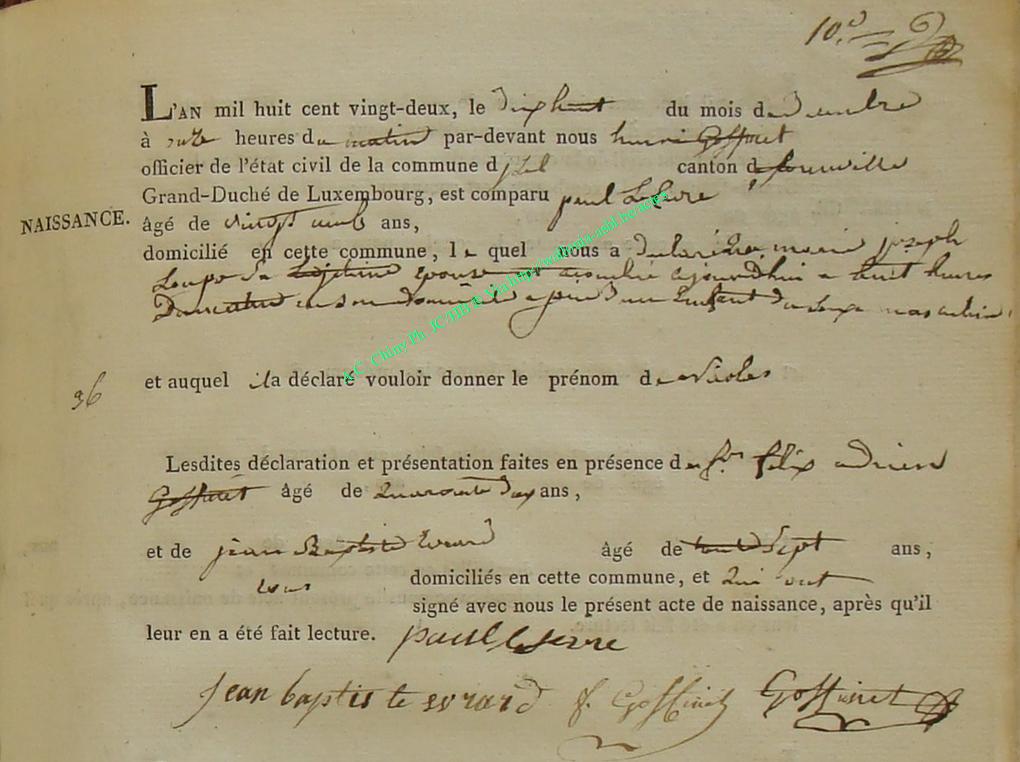 10.
L'AN mil huit cent vingt-deux, le dixhuit du mois de decembre
à onze heures du matin par-devant nous henri Goffinet
officier de l'état civil de la commune d'jzel canton de florenville
Grand-Duché de Luxembourg, est comparu paul Lefevre
NAISSANCE. âgé de vingt ans,
domicilié en cette commune, le quel nous a declaré que marie joseph
son epouse est accouchée aujourdhui a huit heures
Du matin en son domicile d'un Enfant du sexe masculin
36
et auquel il a déclaré vouloir donner le prénom de Nicolas
Lesdites déclaration et présentation faites en présence de Sr. felix adrien
Goffinet âgé de Quarante Deux ans,
et de jean Baptiste Evrard âgé de trente Sept ans,
tous domiciliés en cette commune, et qui ont
signé avec nous le présent acte de naissance, après qu'il
leur en a été fait lecture. paul lefevre
jean baptiste evrard f. Goffinet Goffinet
A.C. Chiny Ph. JC/HB & Via http://wallonia-asbl.be/actes